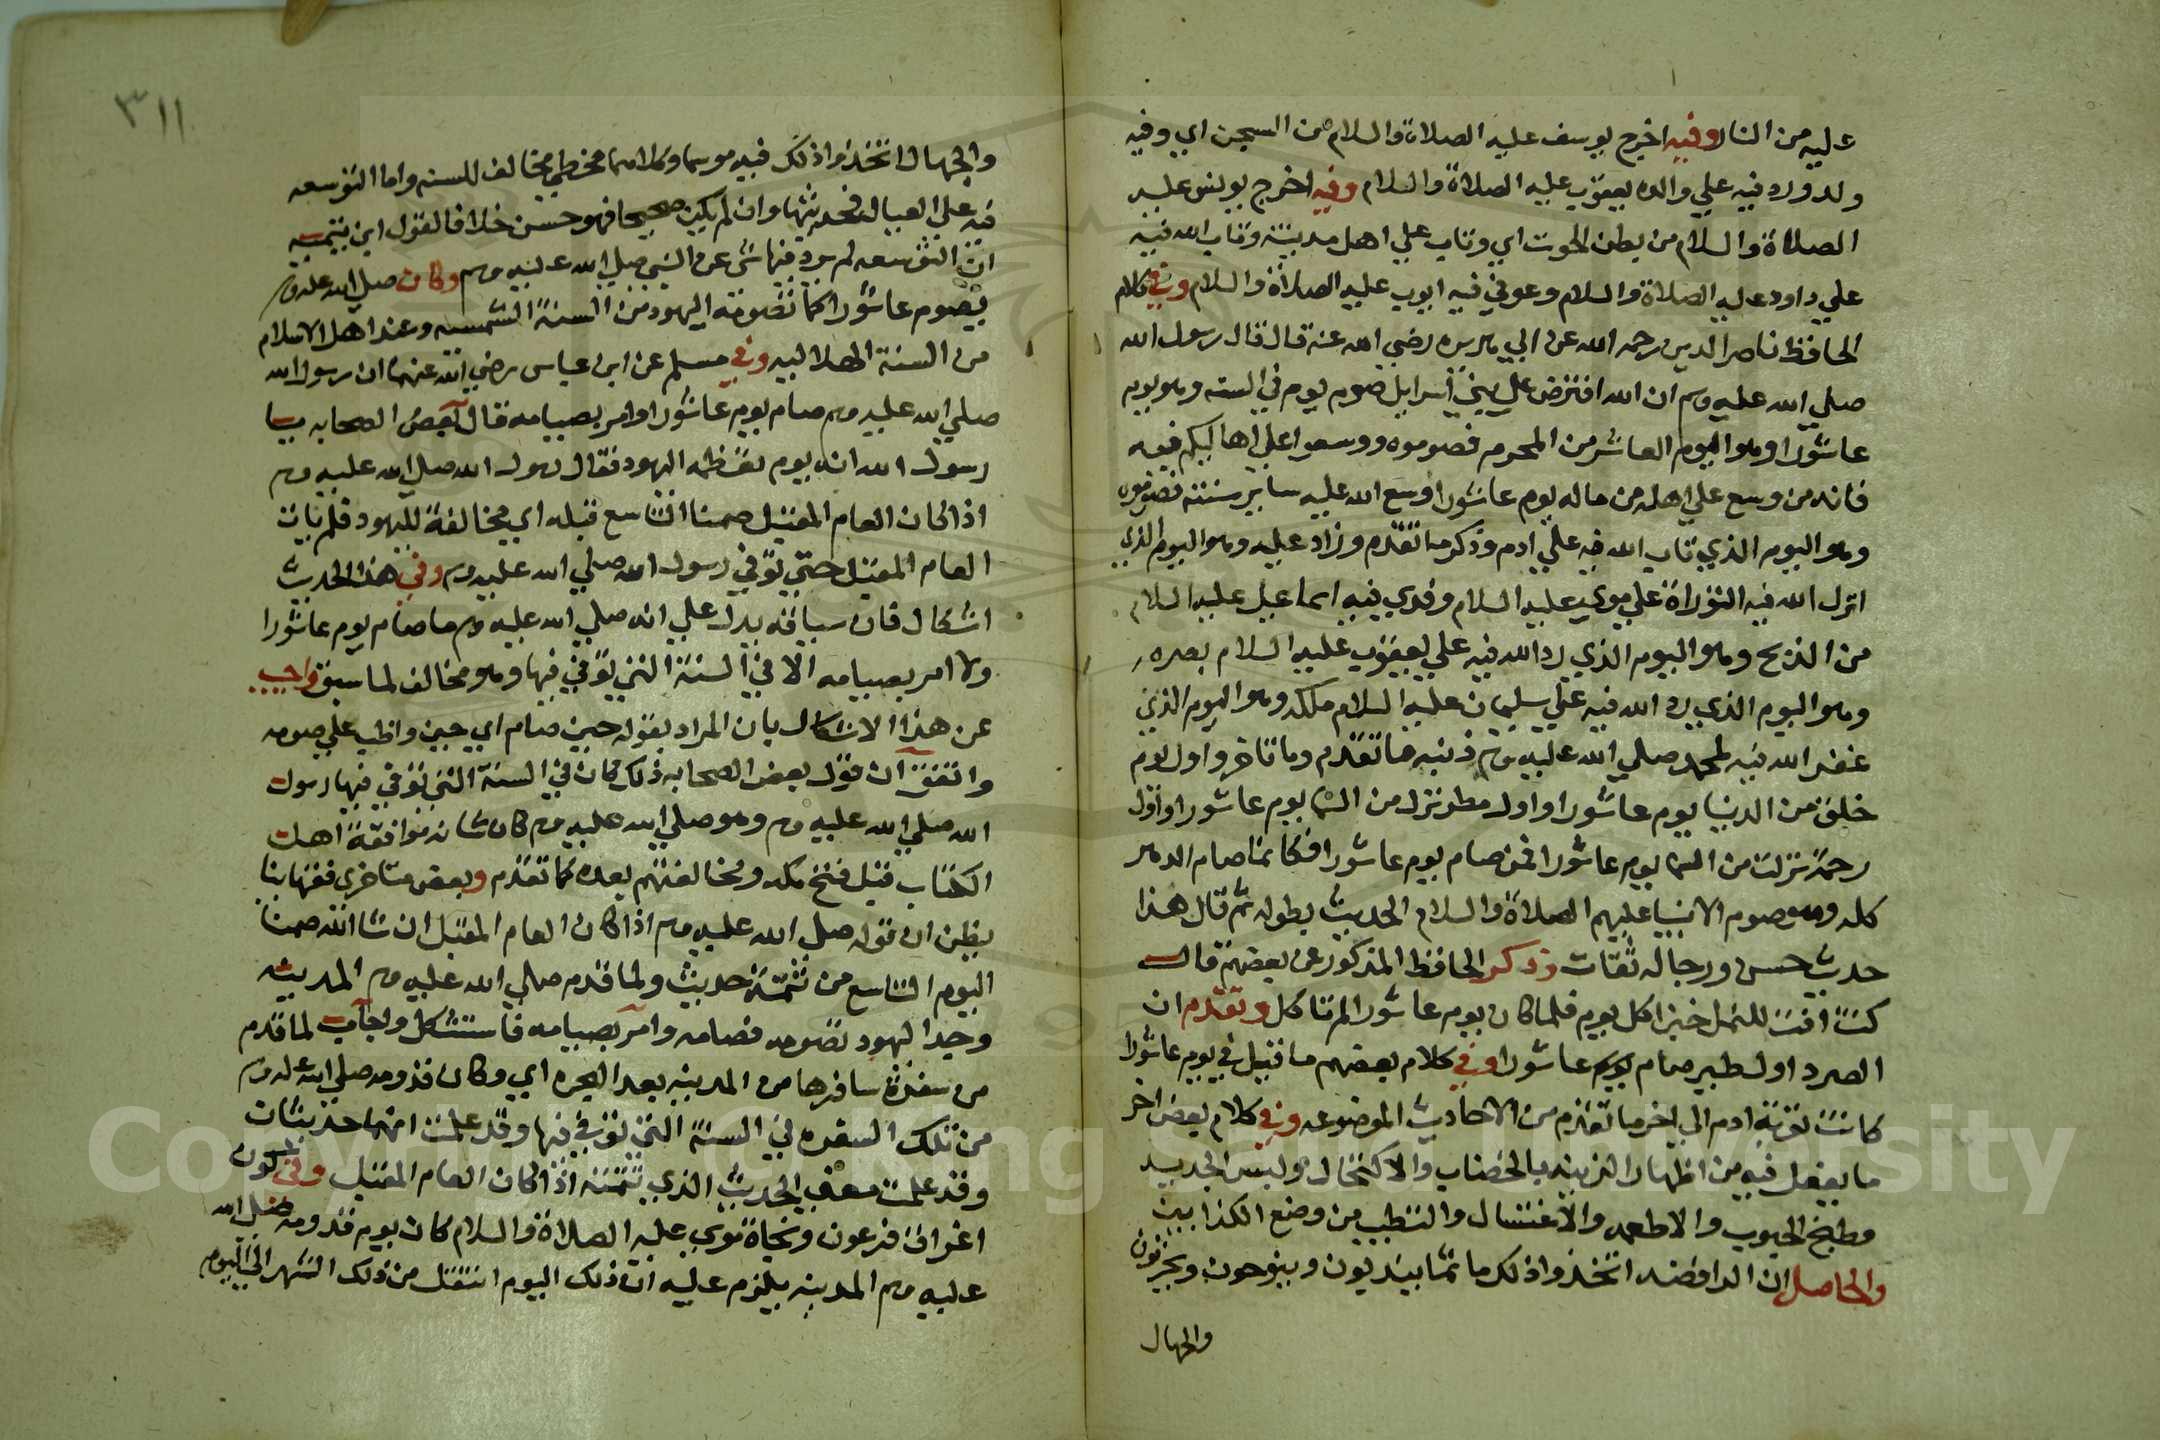 عليه من النار وفيه اخرج يوسف عليه الصلاة والسلام من السجن اي وفيه
ولد ورد فيه علي والده يعقوب عليه الصلاة والسلام وفيه اخرج يونس عليه
الصلاة والسلام من بطن الحوت اي وتاب علي اهل مدينته وتاب الله فيه
علي داود عليه الصلاة والسلام وعوفي فيه ايوب عليه الصلاة والسلام وفي كلام
الحافظ ناصر الدين رحمه الله عن ابي هريره رضي الله عنه قال قال رسول الله
صلي الله عليه وسم ان الله افترض علي بني اسرايل صوم يوم في السنه وهو يوم
عاشورا وهو اليوم العاشر من المحرم فصوموه ووسعوا علي اهاليكم فيه
فانه من وسع علي اهله من ماله يوم عاشورا وسع الله عليه ساير سنته فصوموه
وهو اليوم الذي تاب الله فيه علي ادم وذكر ما تقدم وزاد عليه وهو اليوم الذي
انزل الله فيه التوراة علي موسي عليه السلام وفدي فيه اسماعيل عليه السلام
من الذبح وهو اليوم الذي رد الله فيه علي يعقوب عليه السلام بصره
وهو اليوم الذي رد الله فيه علي سليمان عليه السلام ملكه وهو اليوم الذي
غفر الله فيه لمحمد صلي الله عليه وسم ذنبه ما تقدم وما تاخر واول يوم
خلق من الدنيا يوم عاشورا واول مطر نزل من السما يوم عاشورا واول
رحمة نزلت من السما يوم عاشورا فمن صام يوم عاشورا فكانما صام الدهر
كله وهو صوم الانبيا عليهم الصلاة والسلام الحديث بطوله ثم قال هذا
حديث حسن ورجاله ثقات وذكر الحافظ المذكور عن بعضهم قال
كنت افت للنمل خبزا كل يوم فلما كان يوم عاشورا لم تاكل وتقدم ان
الصرد اول طير صام يوم عاشورا وفي كلام بعضهم ما قيل في يوم عاشورا
كانت توبة ادم الي اخر ما تقدم من الاحاديث الموضوعه وفي كلام بعض اخر
ما يفعل فيه من اظهار الزينه بالخضاب والاكتحال ولبس الجديد
وطبخ الحبوب والاطعمه والاغتسال والتطيب من وضع الكذابين
والحاصل ان الرافضه اتخذوا ذلك ماتما يندبون وينوحون ويحزنون
والجهال
٣١١
والجهال اتخذوا ذلك فيه موسما وكلاهما مخطي مخالف للسنه واما التوسعه
فيه علي العيال فحديثها وان لم يكن صحيحا فهو حسن خلافا لقول ابن تيميه
ان التوسعه لم يرد فيها شي عن النبي صلي الله عليه وسم وكان صلي الله عليه وسم
يصوم عاشورا كما تصومه اليهود من السنة الشمسيه وعند اهل الاسلام
من السنة الهلاليه وفي مسلم عن ابن عباس رضي الله عنهما ان رسول الله
صلي الله عليه وسم صام يوم عاشورا وامر بصيامه قال بعض الصحابه يا
رسول الله انه يوم تعظمه اليهود فقال رسول الله صلي الله عليه وسم
اذا كان العام المقبل صمنا التاسع قبله اي مخالفة لليهود فلم يات
العام المقبل حتي توفي رسول الله صلي الله عليه وسم وفي هذا الحديث
اشكال فان سياقه يدل علي انه صلي الله عليه وسم ما صام يوم عاشورا
ولا امر بصيامه الا في السنة التي توفي فيها وهو مخالف لما سبق واجيب
عن هذا الاشكال بان المراد بقوله حين صام اي حين واظب علي صومه
واتفق ان قول بعض الصحابه ذلك كان في السنة التي توفي فيها رسول
الله صلي الله عليه وسم وهو صلي الله عليه وسم كان شانه موافقة اهل
الكتاب قبل فتح مكه ومخالفتهم بعده كما تقدم وبعض متاخري فقهاينا
يظن ان قوله صلي الله عليه وسم اذا كان العام المقبل ان شا الله صمنا
اليوم التاسع من تتمة حديث ولما قدم صلي الله عليه وسم المدينه
وجد اليهود تصومه فصامه وامر بصيامه فاستشكل واجاب لما قدم
من سفرة سافرها من المدينه بعد الهجره اي وكان قدومه صلي الله عليه وسم
من تلك السفره في السنة التي توفي فيها وقد علمت انهما حديثان
وقد علمت معني الحديث الذي تتمته اذا كان العام المقبل وفي كون
اغراق فرعون ونجاة موسي عليه الصلاة والسلام كان يوم قدومه صلي الله
عليه وسم المدينه يلزم عليه ان ذلك اليوم انتقل من ذلك الشهر الي اليوم
Copyright © King Saud University